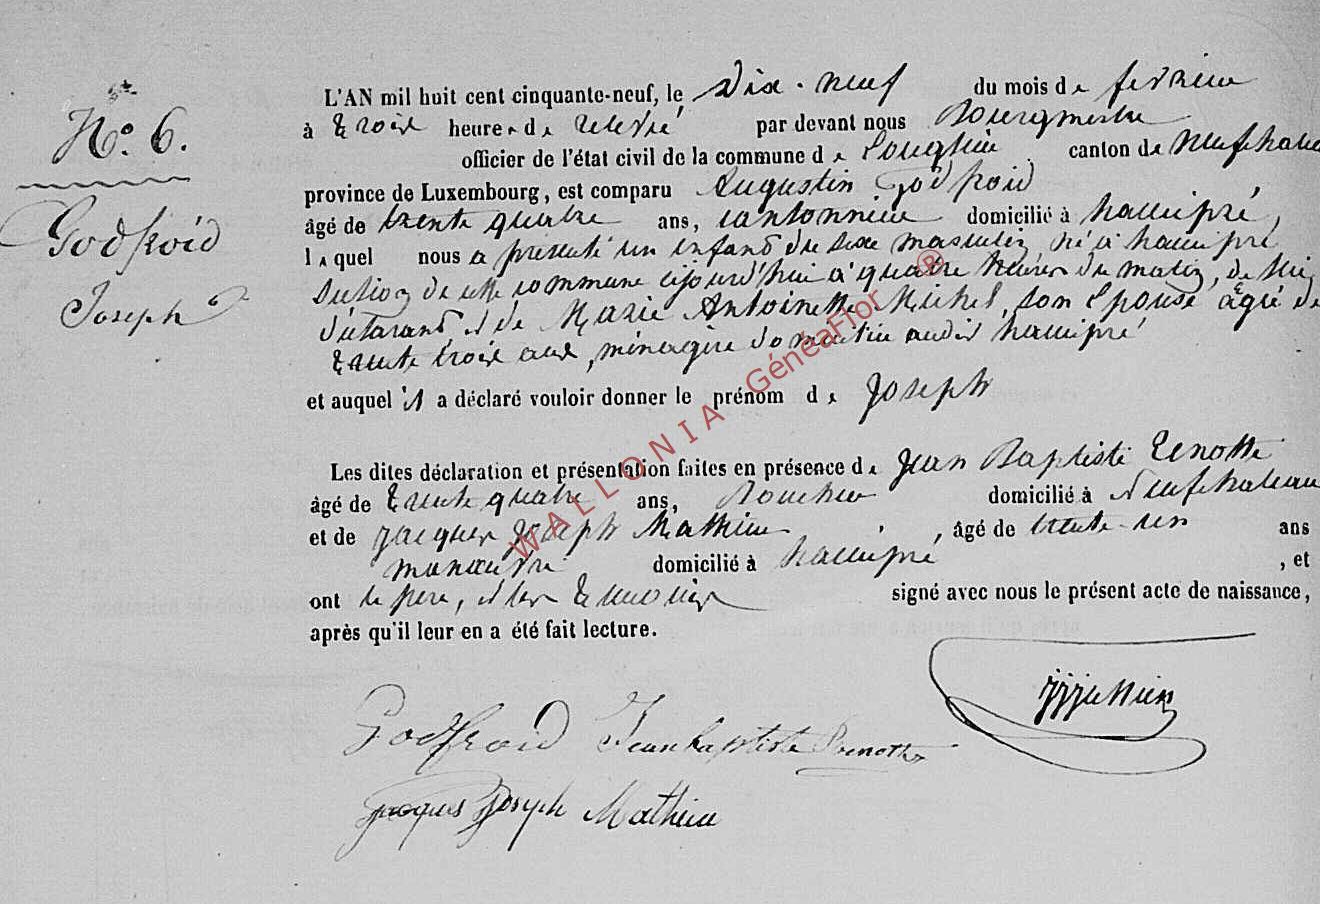 N.º 6.
Godfroid
Joseph
L'AN mil huit cent cinquante-neuf, le Dix-neuf du mois de fevrier
à trois heures de relevé par devant nous Bourgmestre
officier de l'état civil de la commune de Longlier canton de Neufchateau
province de Luxembourg, est comparu Augustin Godfroid
âgé de trente quatre ans, cantonnier domicilié à hamipré,
lequel nous a présenté un enfant du sexe masculin né à hamipré
section de cette commune cejourd'hui à quatre heures du matin, de lui
déclarant, et de Marie Antoinette Michel, son Epouse agée de
trente trois ans, ménagère domiciliée audit hamipré
et auquel il a déclaré vouloir donner le prénom de Joseph
Les dites déclaration et présentation faites en présence de Jean Baptiste
âgé de trente quatre ans, domicilié à Neufchateau
et de Jacques Joseph Mathieu, âgé de trente-un ans
manœuvre domicilié à hamipré, et
ont le père, et les témoins signé avec nous le présent acte de naissance,
après qu'il leur en a été fait lecture.
Godfroid Jean baptiste
Jacques Joseph Mathieu
WALLONIA GénéaFlor ®